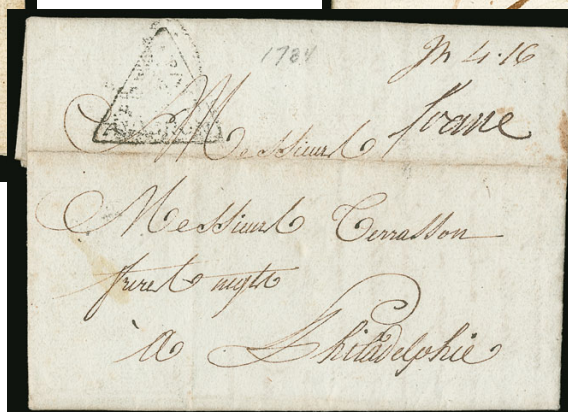 1784
franc
Messieurs
Messieurs Terrasson
freres negts
à Philadelphie